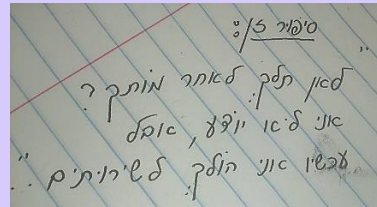 סיפור זן:
"לאן תלך לאחר מותך?
אני לא יודע, אבל
עכשיו אני הולך לשירותים."